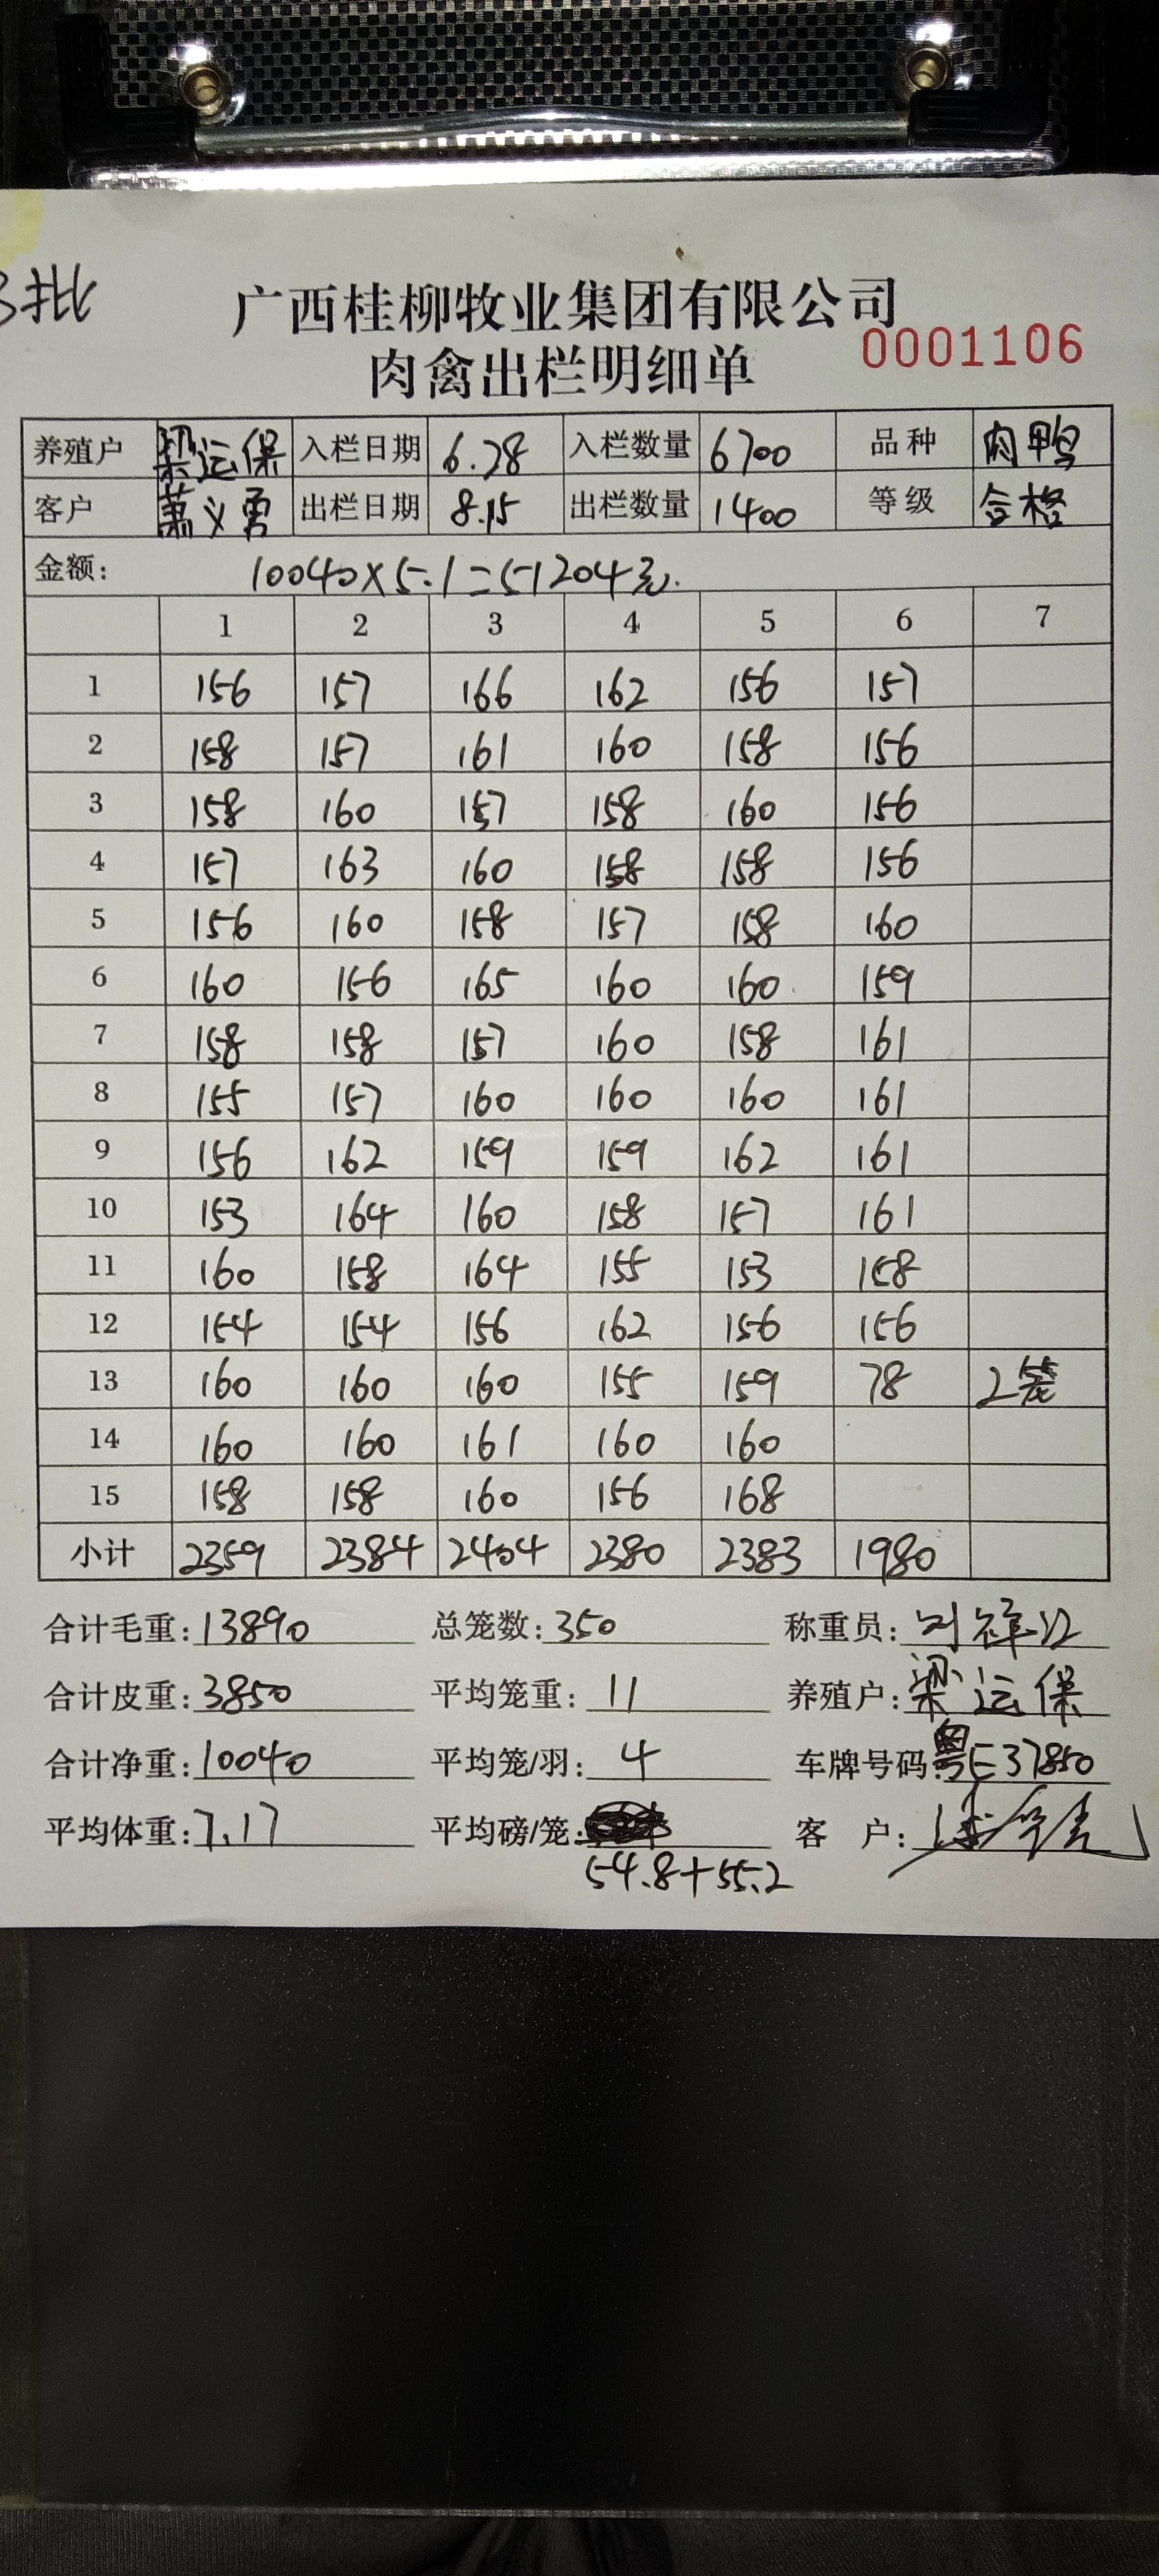 3批
广西桂柳牧业集团有限公司
肉禽出栏明细单
0001106
养殖户 梁运保 入栏日期 6.28 入栏数量 6700 品种 肉鸭
客户 萧义勇 出栏日期 8.15 出栏数量 1400 等级 合格
金额: 10040×5.1=51204元.
1 2 3 4 5 6 7
1 156 157 166 162 156 157
2 158 157 161 160 158 156
3 158 160 157 158 160 156
4 157 163 160 158 158 156
5 156 160 158 157 158 160
6 160 156 165 160 160 159
7 158 158 157 160 158 161
8 155 157 160 160 160 161
9 156 162 159 159 162 161
10 153 164 160 158 157 161
11 160 158 164 155 153 158
12 154 154 156 162 156 156
13 160 160 160 155 159 78 2笼
14 160 160 161 160 160
15 158 158 160 156 168
小计 2359 2384 2404 2380 2383 1980
合计毛重:13890 总笼数:350 称重员:
合计皮重:3850 平均笼重:11 养殖户:梁运保
合计净重:10040 平均笼/羽:4 车牌号码:粤E37850
平均体重:7.17 平均磅/笼: 客 户:
54.8+55.2